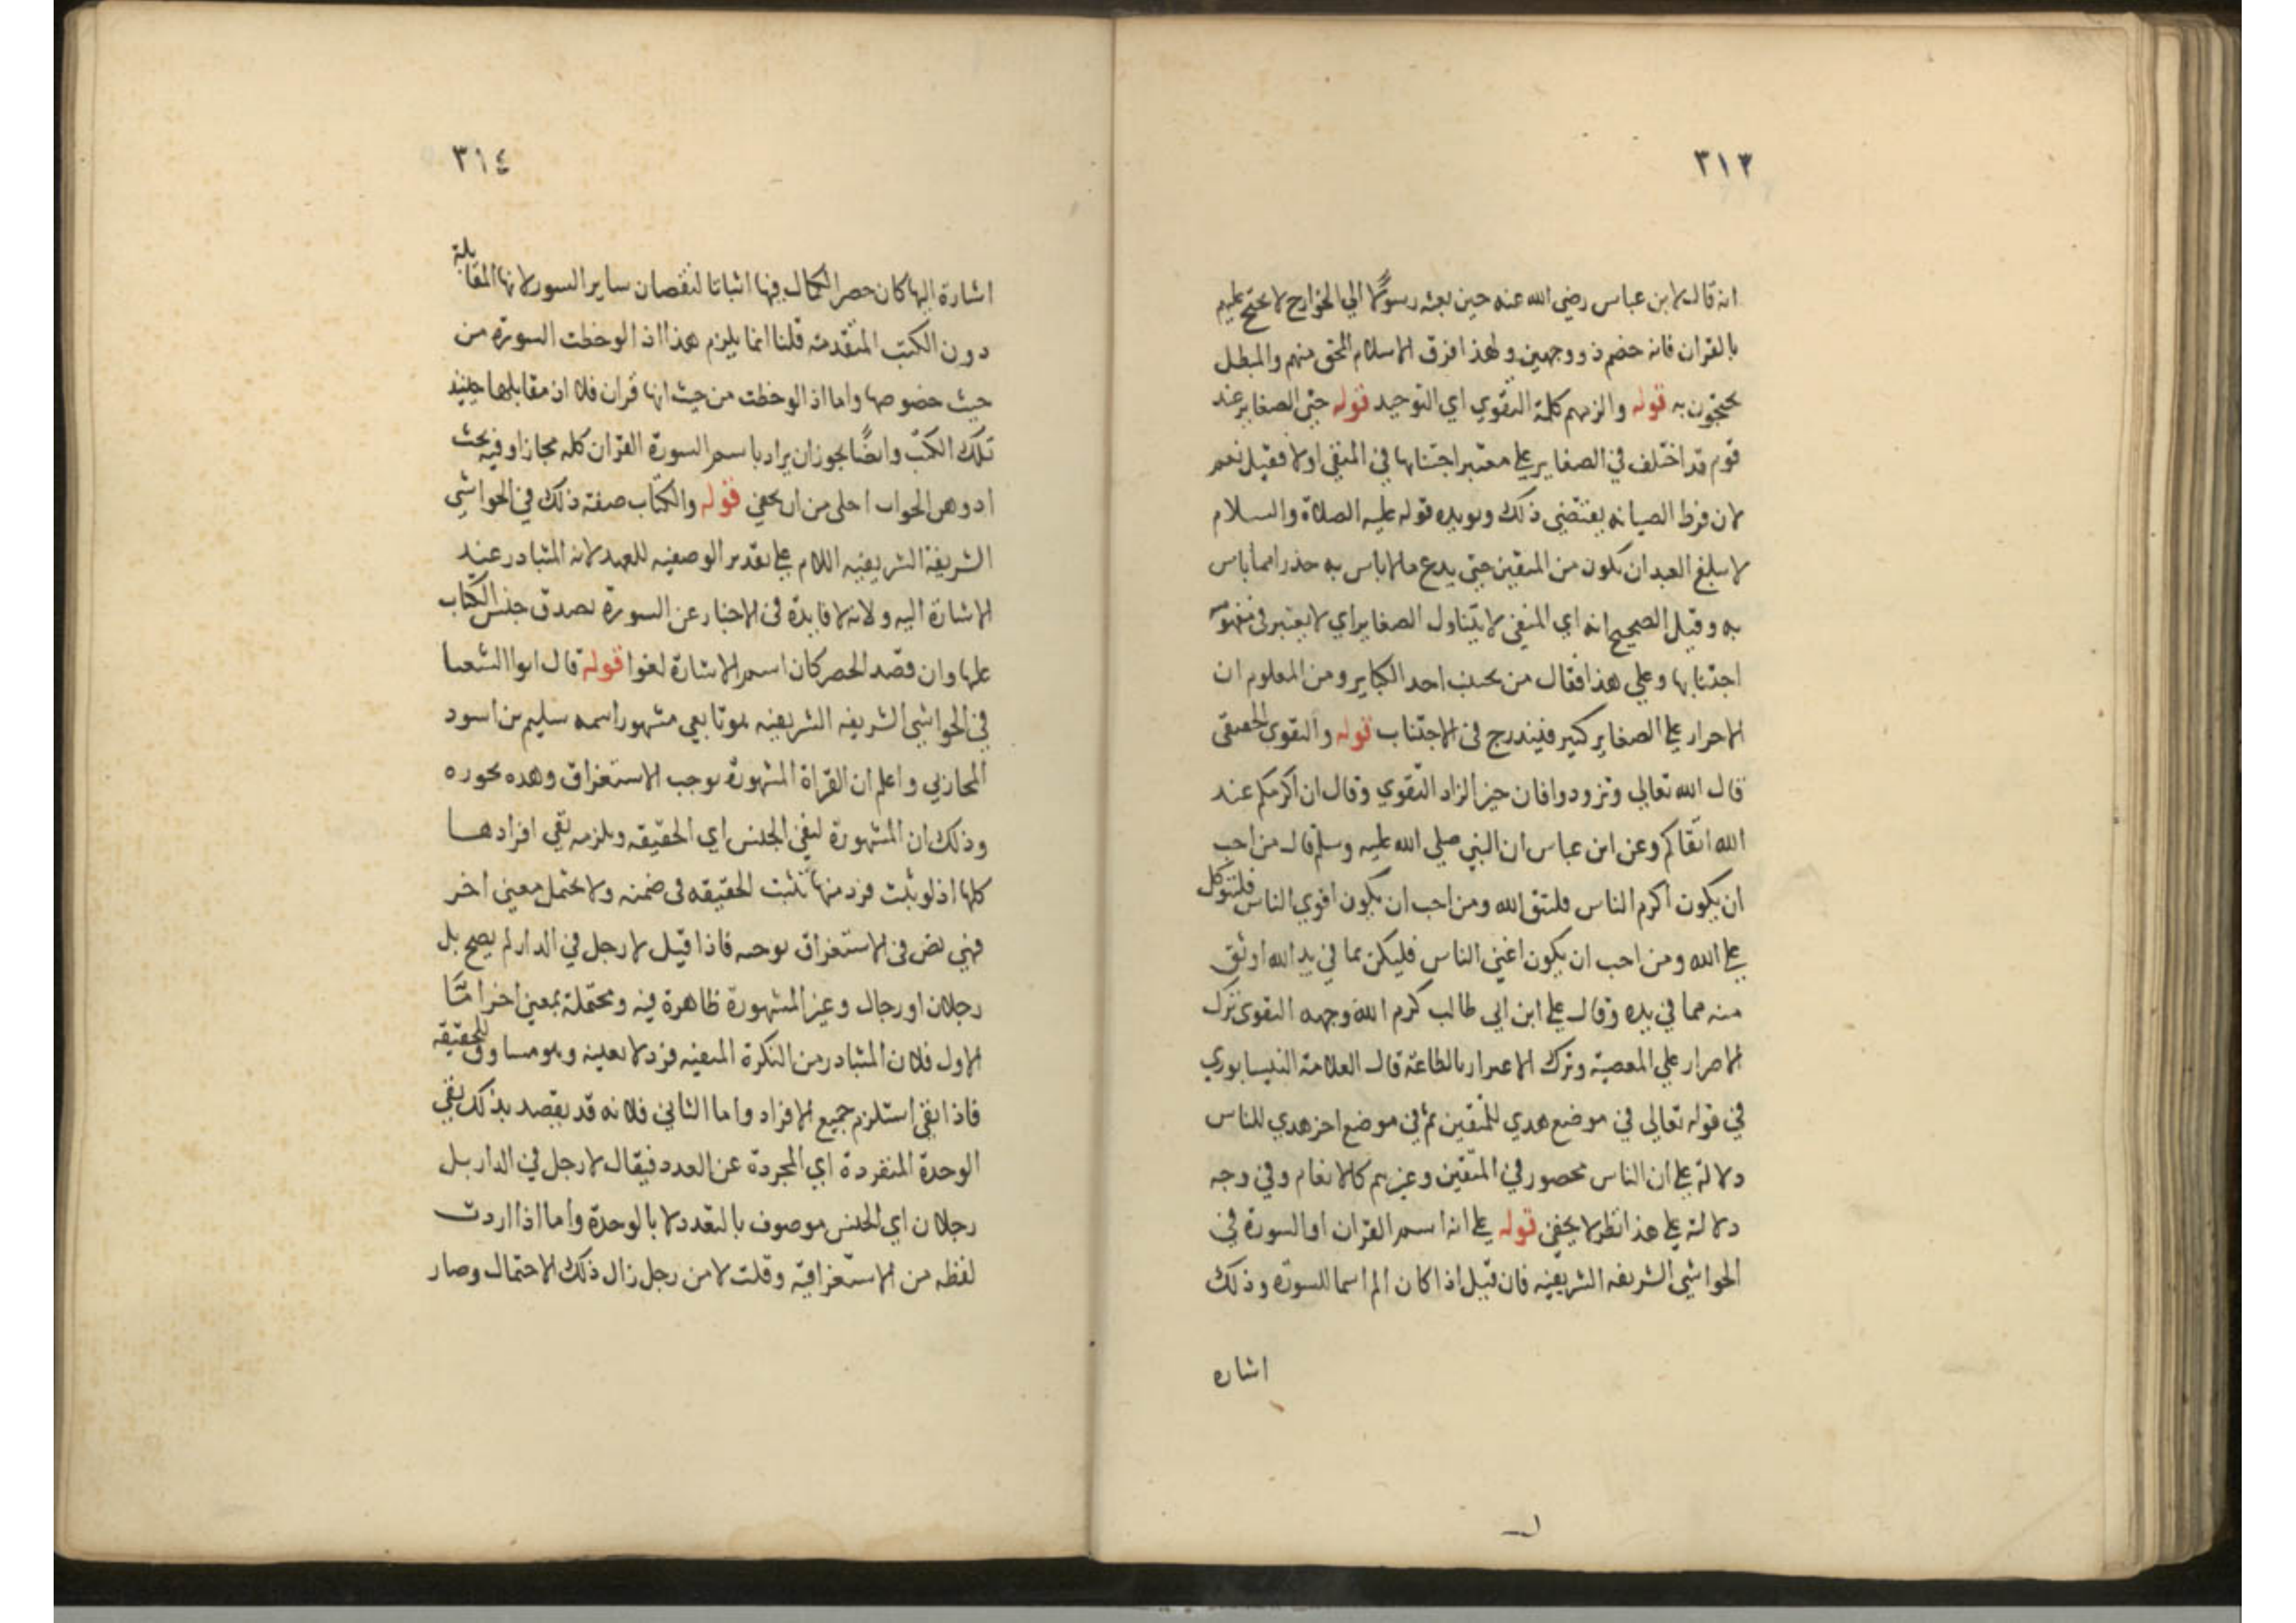 ٣١٣
انه قال لابن عباس رضي الله عنه حين بعثه رسولا الي الخوارج لا تحتج عليهم
بالقران فانه خصم ذو وجهين ولهذا فرق الاسلام المحق منهم والمبطل
يحتجون به قوله والزمهم كلمة التقوي اي التوحيد قوله حتي الصغاير عند
قوم قد اختلف في الصغاير علي معتبر اجتنابها في المتقي اولا فقيل نعم
لان فرط الصيانه يقتضي ذلك ويويده قوله عليه الصلاة والسلام
لا يبلغ العبد ان يكون من المتقين حتي يدع ما لا باس به حذرا مما باس
به وقيل الصحيح انه اي المتقي لا يتناول الصغاير اي لا يعتبر في مفهومه
اجتنابها وعلي هذا فقال من يجتنب احد الكباير ومن المعلوم ان
الاحرار علي الصغاير كبير فيندرج في الاجتناب قوله والتقوي الحقيقي
قال الله تعالي وتزودوا فان خير الزاد التقوي وقال ان اكرمكم عند
الله اتقاكم وعن ابن عباس ان النبي صلي الله عليه وسلم قال من احب
ان يكون اكرم الناس فليتق الله ومن احب ان يكون اقوي الناس فليتوكل
علي الله ومن احب ان يكون اغني الناس فليكن بما في يد الله اوثق
منه مما في يده وقال علي ابن ابي طالب كرم الله وجهه التقوي ترك
الاصرار علي المعصية وترك الاغترار بالطاعة قال العلامة النيسابوري
في قوله تعالي في موضع هدي للمتقين ثم في موضع اخر هدي للناس
دلالة علي ان الناس محصور في المتقين وغيرهم كالانعام وفي وجه
دلالة علي هذا نظر لا يخفي قوله علي انه اسم القران او السورة في
الحواشي الشريفه الشريفيه فان قيل اذا كان الم اسما للسورة وذلك
اشاره
٣١٤
اشارة اليها كان حصر الكمال فيها اثباتا لنقصان ساير السور لانها المقابلة
دون الكتب المتقدمه قلنا انما يلزم هذا اذ الوحظت السورة من
حيث خصوصها واما اذ الوحظت من حيث انها قران فلا اذ مقابلها حينيذ
تلك الكتب وايضًا يجوز ان يراد باسم السورة القران كله مجازا وفيه بحث
اد وهن الجواب احلي من ان يخفي قوله والكتاب صفة ذلك في الحواشي
الشريفة الشريفيه اللام علي تقدير الوصفيه للعهد لانه المتبادر عند
الاشارة اليه ولانه لا فايدة في الاخبار عن السورة بصدق جنس الكتاب
عليها وان قصد الحصر كان اسم الاشارة لغوا قوله قال ابوا الشعسا
في الحواشي الشريفه الشريفيه هو تابعي مشهور اسمه سليم بن اسود
المحاربي واعلم ان القراة المشهورة توجب الاستغراق وهده تجوزه
وذلك ان المشهورة لنفي الجنس اي الحقيقه ويلزمه نفي افرادها
كلها اذ لو ثبت فرد منها ثبتت الحقيقه في ضمنه ولا يحتمل معني اخر
فهي نص في الاستغراق توجبه فاذا قيل لا رجل في الدار لم يصح بل
رجلان او رجال وغير المشهورة ظاهرة فيه ومحتملة بمعني اخر امَّا
الاول فلان المتبادر من النكرة المنفيه فرد لا بعينه وهو مساوق للحقيقه
فاذا انفي استلزم جميع الافراد واما الثاني فلانه قد يقصد بذلك نفي
الوحدة المنفردة اي المجردة عن العدد فيقال لا رجل في الدار بل
رجلان اي الجنس موصوف بالتعدد لا بالوحدة واما اذا اردت
لفظه من الاستغراقية وقلت لا من رجل زال ذلك الاحتمال وصار